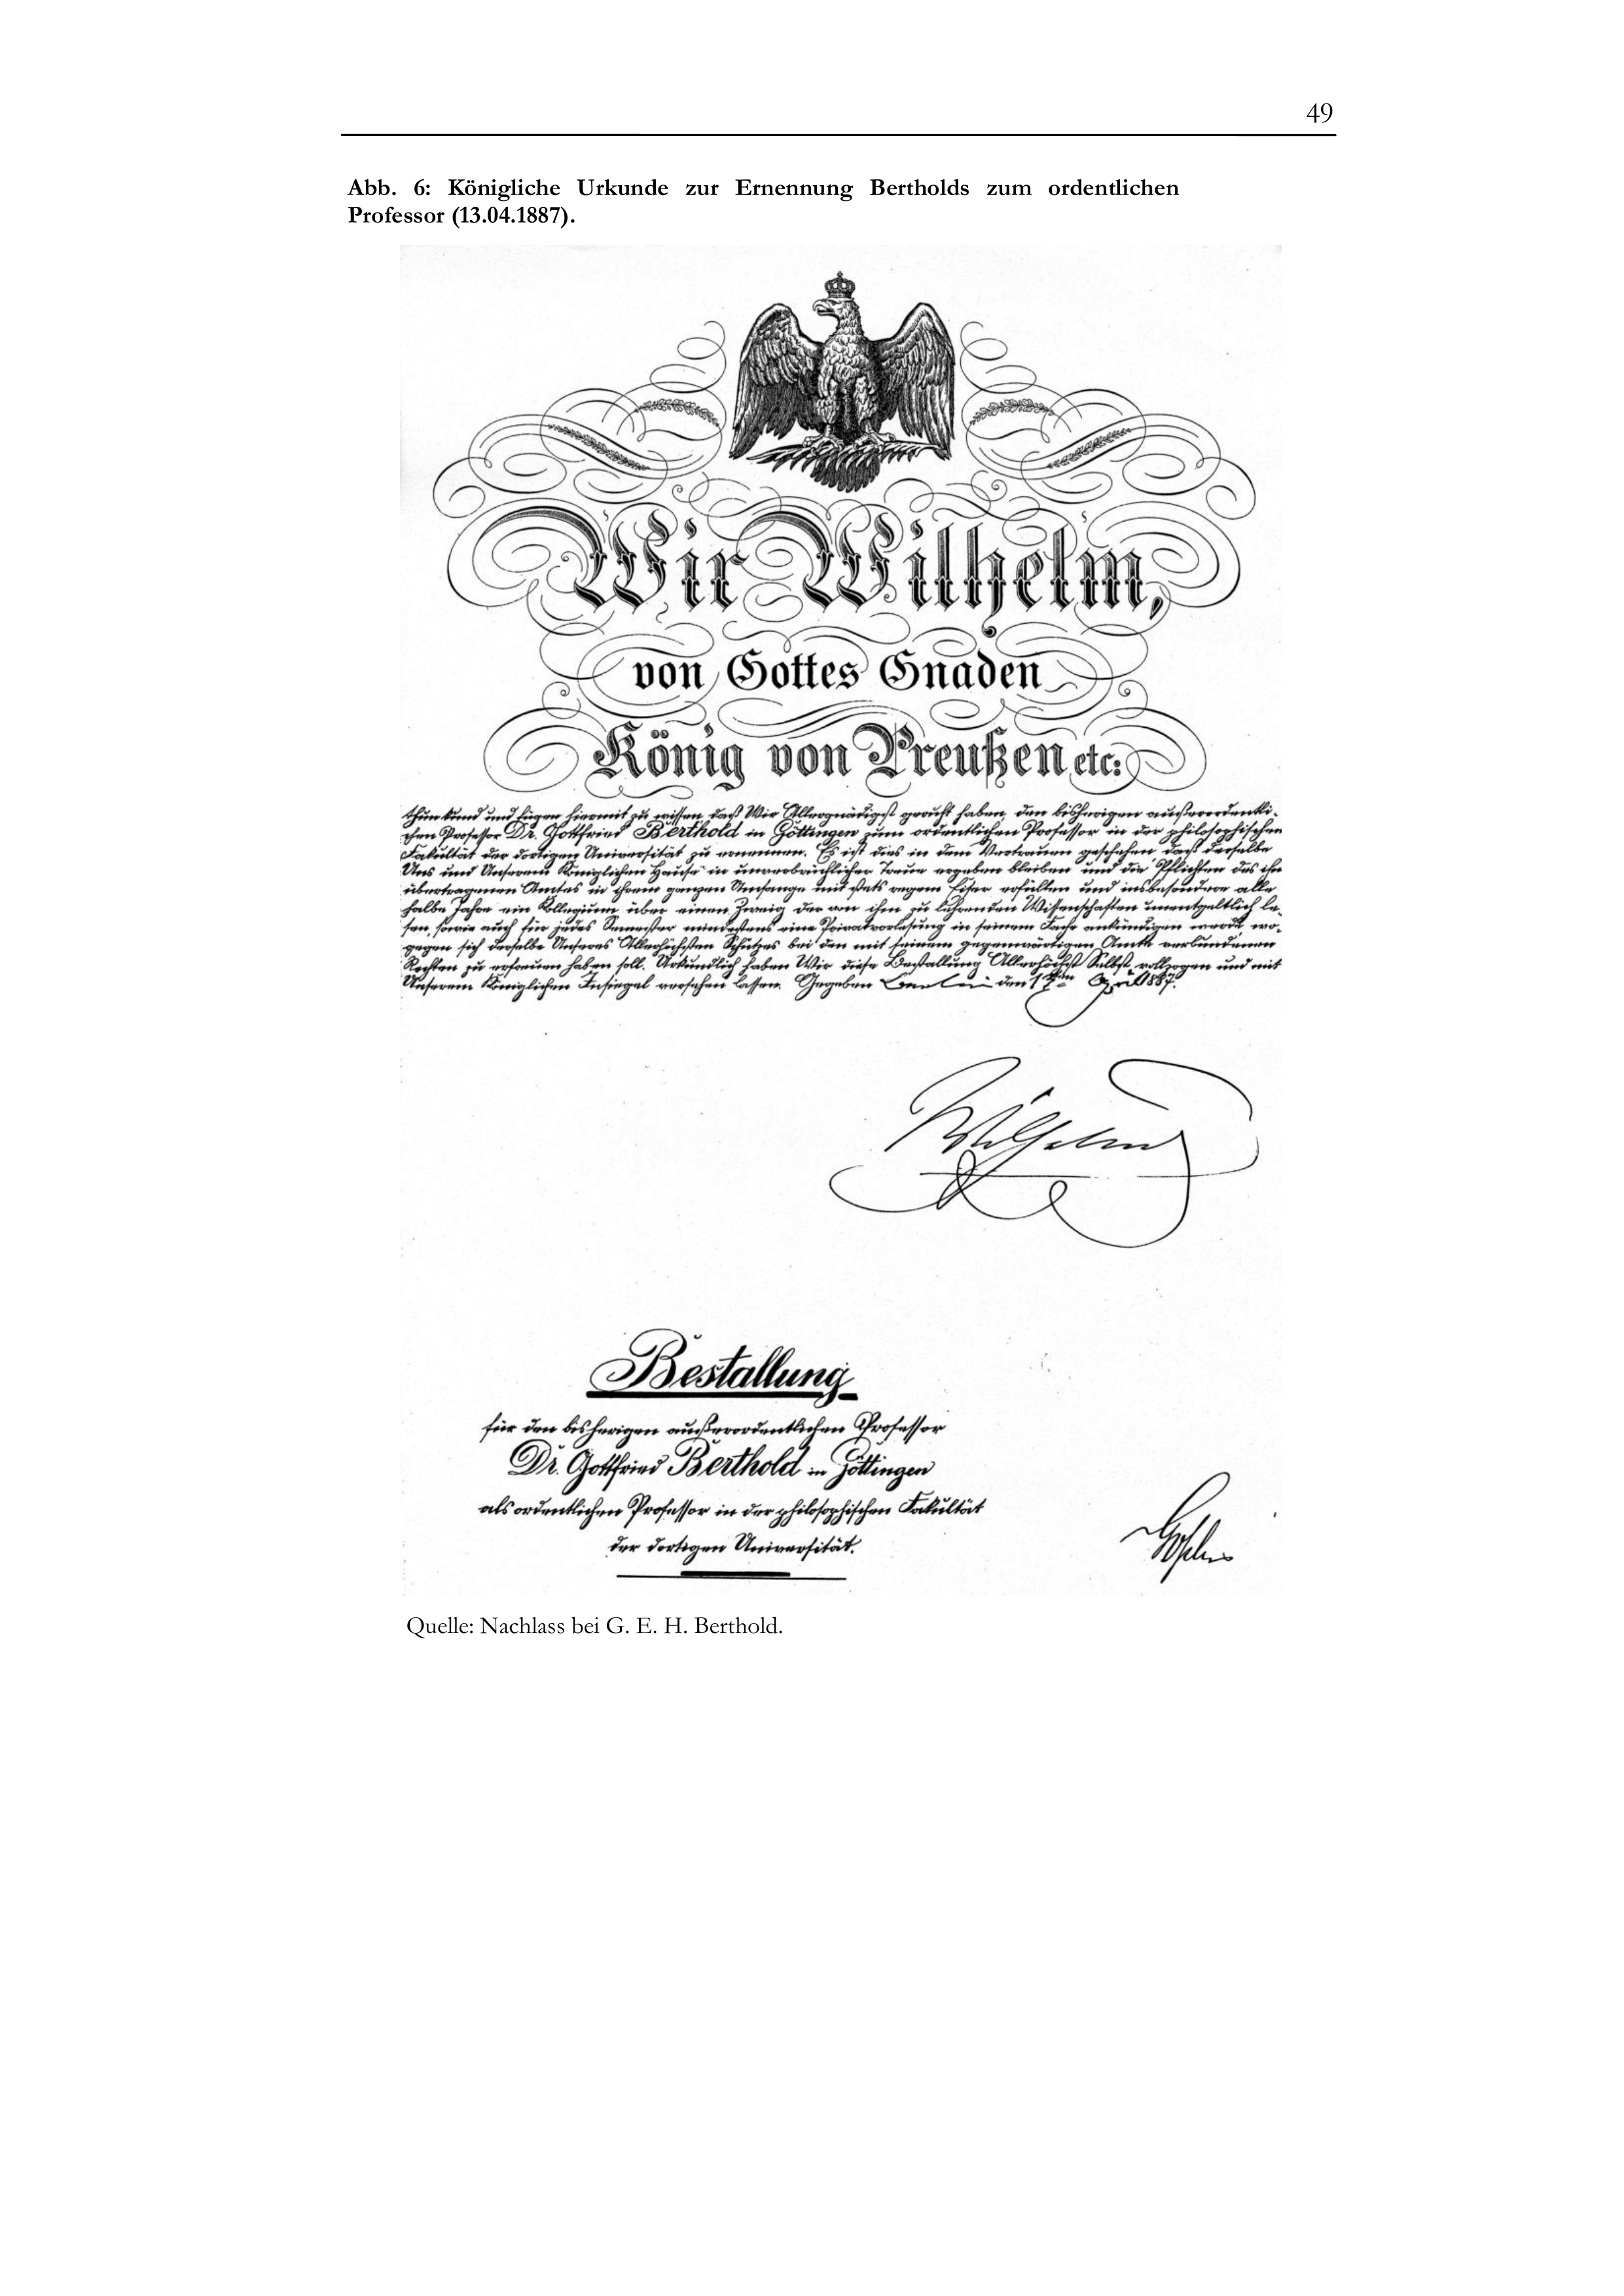 49
Abb. 6: Königliche Urkunde zur Ernennung Bertholds zum ordentlichen
Professor (13.04.1887).
Wir Wilhelm,
von Gottes Gnaden
König von Preußen etc:
thun kund und fügen hiermit zu wissen, daß Wir Allergnädigst geruht haben, den bisherigen außerordentli-
chen Professor Dr. Gottfried Berthold in Göttingen zum ordentlichen Professor in der philosophischen
Fakultät der dortigen Universität zu ernennen. Es ist dies in dem Vertrauen geschehen, daß derselbe
Uns und Unserem Königlichen Hause in unverbrüchlicher Treue ergeben bleiben und die Pflichten des ihm
übertragenen Amtes in ihrem ganzen Umfange mit stets regem Eifer erfüllen und insbesondere alle
halbe Jahre ein Kollegium über einen Zweig der von ihm zu lehrenden Wissenschaften unentgeltlich le-
sen, sowie auch für jedes Semester mindestens eine Privatvorlesung in seinem Fache ankündigen werde, wo-
gegen sich derselbe Unseres Allerhöchsten Schutzes bei den mit seinem gegenwärtigen Amte verbundenen
Rechten zu erfreuen haben soll. Urkundlich haben Wir diese Bestallung Allerhöchst Selbst vollzogen und mit
Unserem Königlichen Insiegel versehen lassen. Gegeben Berlin den April 1887.
Wilhelm
Bestallung
für den bisherigen außerordentlichen Professor
Dr. Gottfried Berthold in Göttingen
als ordentlichen Professor in der philosophischen Fakultät
der dortigen Universität.
Quelle: Nachlass bei G. E. H. Berthold.